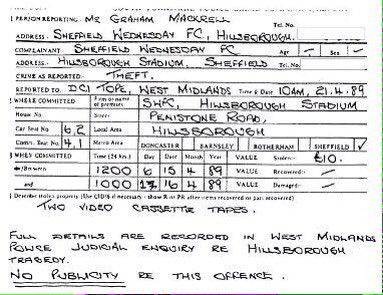 PERSON REPORTING - MR GRAHAM MACKRELL Tel. No.
ADDRESS - SHEFFIELD WEDNESDAY FC, HILLSBOROUGH.
COMPLAINANT SHEFFIELD WEDNESDAY FC Age - Sex -
ADDRESS - HILLSBOROUGH STADIUM, SHEFFIELD Tel. No.
CRIME AS REPORTED: THEFT.
REPORTED TO: DCI TOPE, WEST MIDLANDS Time & Date 10AM, 21.4.89
WHERE COMMITTED Firm or name of premises SWFC, HILLSBOROUGH STADIUM
House No. Street PENISTONE ROAD,
Car Beat No 62 Local Area HILLSBOROUGH
Comm. Year No. 41 Metro Area DONCASTER BARNSLEY ROTHERHAM SHEFFIELD ✓
WHEN COMMITTED Time (24 hrs) Day Date Month Year VALUE Stolen:- £10.
at/Between 1200 6 15 4 89 VALUE Recovered:- -
and 1000 16 4 89 VALUE Damaged:- -
TWO VIDEO CASSETTE TAPES.
FULL DETAILS ARE RECORDED IN WEST MIDLANDS
POLICE JUDICIAL ENQUIRY RE HILLSBOROUGH
TRAGEDY.
NO PUBLICITY RE THIS OFFENCE.